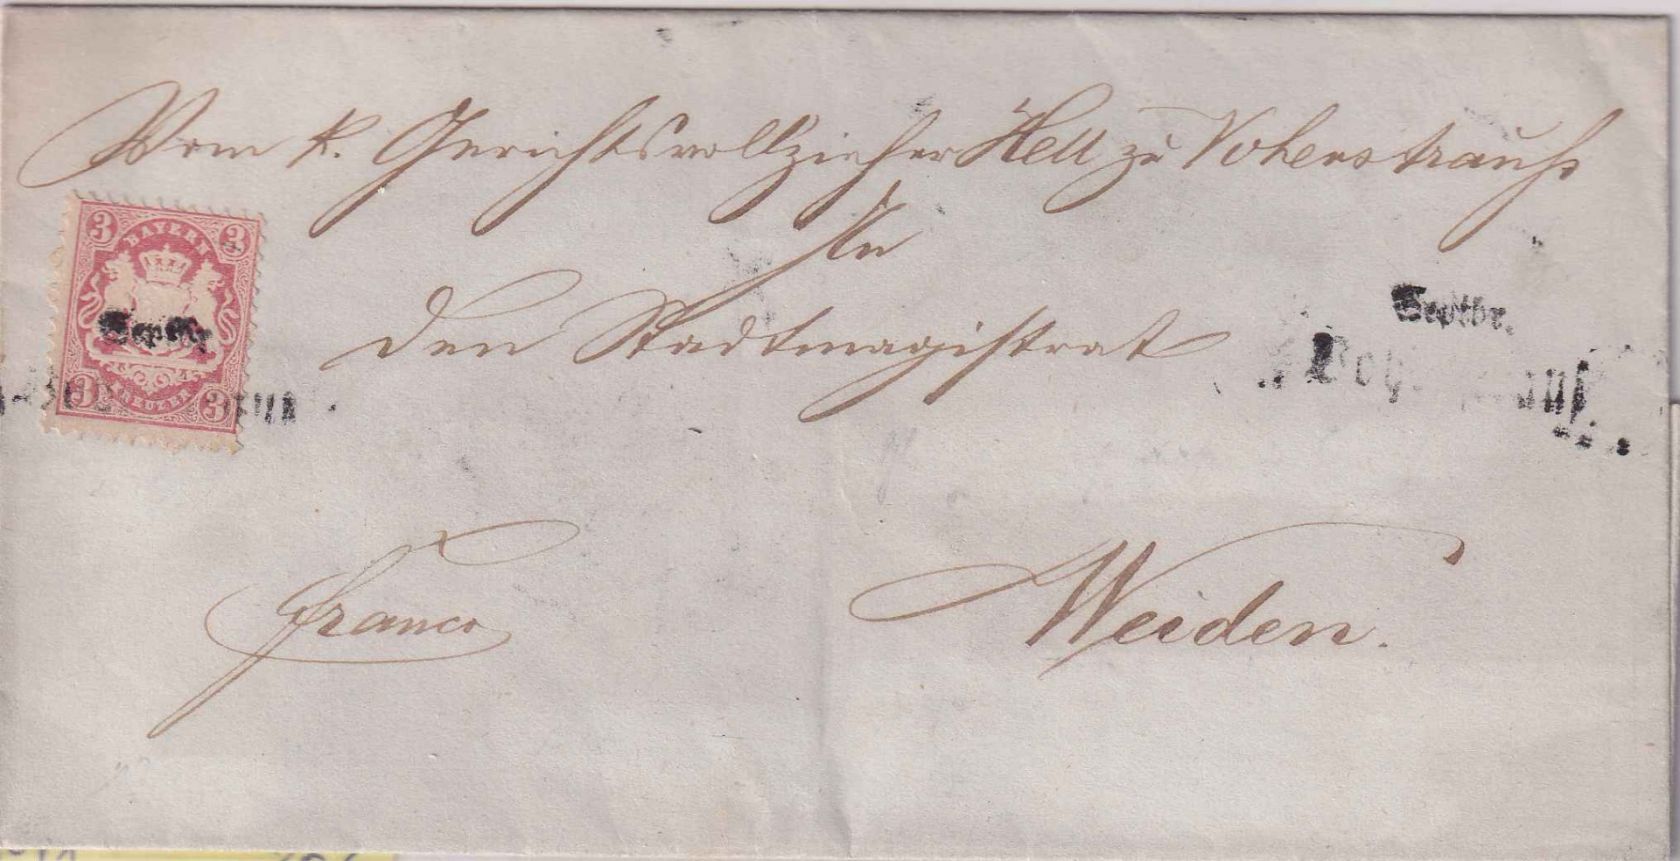 Vom k. Gerichtsvollzieher Hell zu Vohenstrauß
An
den Stadtmagistrat
3 3
BAYERN
Septbr.
3 KREUZER 3
Septbr.
franco
Weiden.